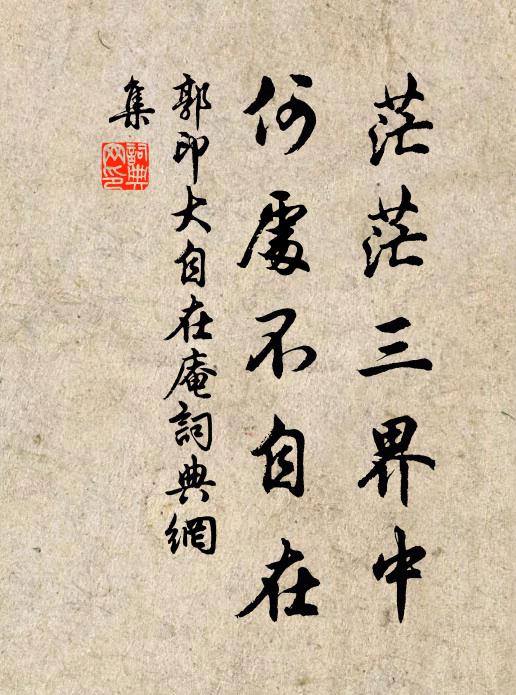 茫茫三界中
何處不自在
郭印大自在庵詞典網
集
詞典網印